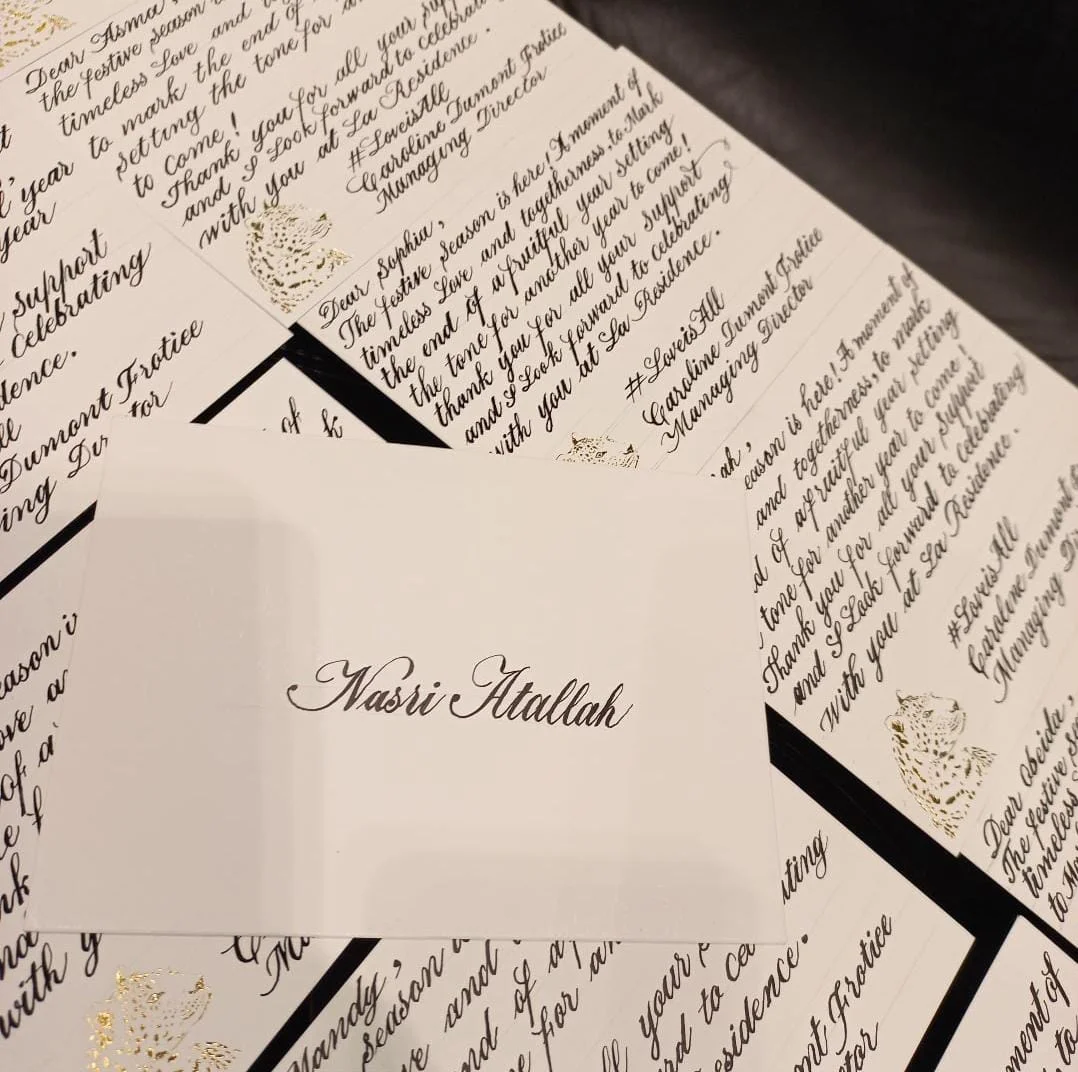 Dear Asma
the festive season
timeless Love and
to mark the end of
setting the tone for
to come!
Thank you for all your
and I Look forward to celebra
with you at La Residence.
#LoveisAll
Caroline Dumont Frotiee
Managing Director
year
year
Support
Celebrating
dence.
Dumont Frotiee
ing Dir
tor
Dear Sophia,
The festive Season is here! A moment of
timeless Love and togetherness, to Mark
the end of a fruitful year setting
the tone for another year to come!
thank you for all your Support
and I Look forward to celebrating
with you at La Residence.
#LoveisAll
Caroline Dumont Frotiee
Managing Director
of
k
ah,
eason is here! A moment of
and togetherness, to mark
d of a fruitful year setting
tone for another year to come!
Thank you for all your Support
and I Look forward to Celebrating
With you at La Residence.
#LoveisAll
Caroline Dumont
Managing Di
Nasri Atallah
eason i
ove a
of a
with y
Dear Abeida,
The festive Se
timeless
to Ma
Mandy,
season
and
nd of a f
for an
your
rd to cel
ating
esidence.
nt Frotiee
ctor
ment of
to